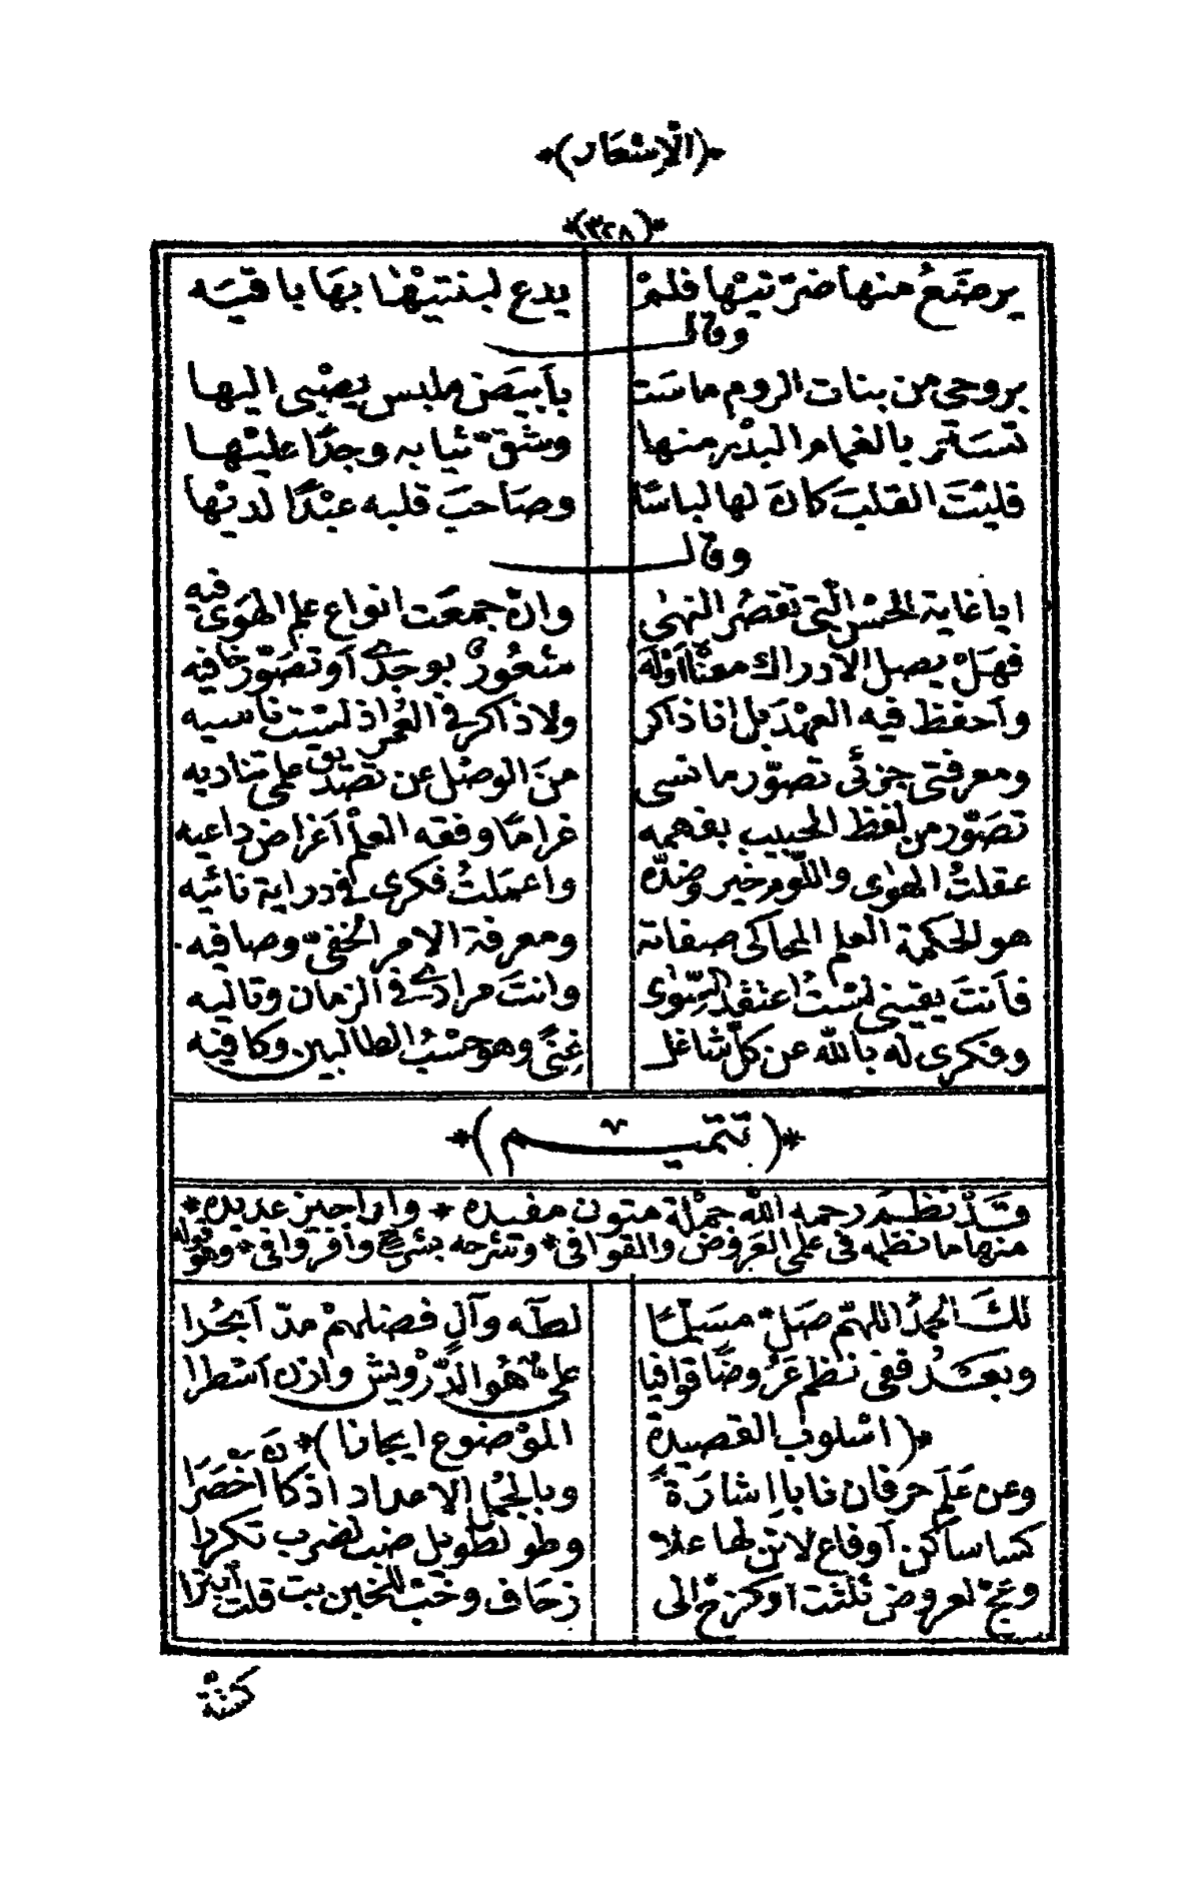 *(الأشعار)*
*(٣٢٨)*
يرضَعُ منها ضرّتيْها فلمْ يدع لبنتيْها بها باقيَه
وقال
بروحى من بنات الروم ماسَت بأبيَض ملبس يصْبى اليها
تستاتر بالغمام البدْر منها وشقّ ثيابه وجدًا عليْها
فليْتَ القلبَ كان لها لباسًا وصَاحبَ قلبه عبْدًا لديْها
وقال
ايا غاية الحسْن الّتى تقصُر النهىٰ وان جمعَت انواع علم الهوَى فيه
فهَلْ يصل الادراك معنًا أوْلَهُ شعُورٌ بوجدى أو تصَوّر خافيه
وأحفظ فيه العهْدَ بل انا ذاكر ولا ذاكر فى العُمر اذ لسْت ناسيه
ومعرفتى جزئى تصوّر ما نسى منَ الوصْل عن تصْديق علمى تناديه
تصَوّر من لفظ الحبيب بفهمه غرامًا وفقه العلْم أغراض داعيه
عقلتُ الهوٰى واللّوم خير وضدّه واعملتُ فكرى فى دراية نائيه
هو الحكمة العلم المحاكى صفاته ومعرفة الامر الخفىّ وصافيه
فأنتَ يقينى لسْتُ اعتقد السّوٰى وانتَ مرادى فى الزمان وقاليه
وفكرى له بالله عن كلّ شاغل غِنىً وهو حسْبُ الطالبين وكافيه
*(تتميم)*
قدْ نظَمَ رحمه الله جمْلة متون مفيده * واراجيز عديده *
منها ما نظمه فى علمى العَروض والقوافى * وشرحه بشرح وافر وافى * وهو قوله
لكَ الحمدُ اللهمّ صَلّ مسَلّمًا لطٰه وآلٍ فضلهمْ مدّ أبحُرا
وبعْد ففى نظم عَرُوضًا قوافيا على هُو الدّرْويش وازن اسْطرا
*(اسْلوب القصيدة الموْضوع ايجازا)*
وعن عَلَم حرفان نابا اِشارَةً وبالجمل الاعداد اذ كان أخْصَرَا
كسا ساكن أوفاع لاتن لها علا وطو لطويل ضب لضرب تكررا
وعج لعروض ثلثت أو كزح الى زحاف وخب للخبن بت قلت أبترا
كسَتة